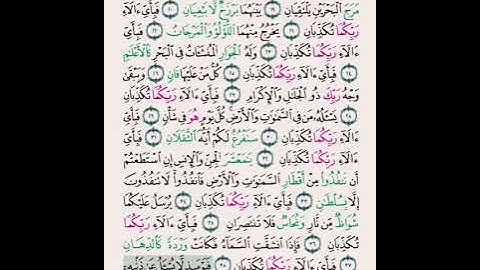 مَرَجَ ٱلْبَحْرَيْنِ يَلْتَقِيَانِ ١٩ بَيْنَهُمَا بَرْزَخٌ لَّا يَبْغِيَانِ ٢٠ فَبِأَىِّ ءَالَآءِ
رَبِّكُمَا تُكَذِّبَانِ ٢١ يَخْرُجُ مِنْهُمَا ٱللُّؤْلُؤُ وَٱلْمَرْجَانُ ٢٢ فَبِأَىِّ
ءَالَآءِ رَبِّكُمَا تُكَذِّبَانِ ٢٣ وَلَهُ ٱلْجَوَارِ ٱلْمُنشَـَٔاتُ فِى ٱلْبَحْرِ كَٱلْأَعْلَٰمِ
٢٤ فَبِأَىِّ ءَالَآءِ رَبِّكُمَا تُكَذِّبَانِ ٢٥ كُلُّ مَنْ عَلَيْهَا فَانٍ ٢٦ وَيَبْقَىٰ
وَجْهُ رَبِّكَ ذُو ٱلْجَلَٰلِ وَٱلْإِكْرَامِ ٢٧ فَبِأَىِّ ءَالَآءِ رَبِّكُمَا تُكَذِّبَانِ
٢٨ يَسْـَٔلُهُۥ مَن فِى ٱلسَّمَٰوَٰتِ وَٱلْأَرْضِ كُلَّ يَوْمٍ هُوَ فِى شَأْنٍ ٢٩ فَبِأَىِّ
ءَالَآءِ رَبِّكُمَا تُكَذِّبَانِ ٣٠ سَنَفْرُغُ لَكُمْ أَيُّهَ ٱلثَّقَلَانِ ٣١ فَبِأَىِّ
ءَالَآءِ رَبِّكُمَا تُكَذِّبَانِ ٣٢ يَٰمَعْشَرَ ٱلْجِنِّ وَٱلْإِنسِ إِنِ ٱسْتَطَعْتُمْ
أَن تَنفُذُوا۟ مِنْ أَقْطَارِ ٱلسَّمَٰوَٰتِ وَٱلْأَرْضِ فَٱنفُذُوا۟ لَا تَنفُذُونَ
إِلَّا بِسُلْطَٰنٍ ٣٣ فَبِأَىِّ ءَالَآءِ رَبِّكُمَا تُكَذِّبَانِ ٣٤ يُرْسَلُ عَلَيْكُمَا
شُوَاظٌ مِّن نَّارٍ وَنُحَاسٌ فَلَا تَنتَصِرَانِ ٣٥ فَبِأَىِّ ءَالَآءِ رَبِّكُمَا
تُكَذِّبَانِ ٣٦ فَإِذَا ٱنشَقَّتِ ٱلسَّمَآءُ فَكَانَتْ وَرْدَةً كَٱلدِّهَانِ
٣٧ فَبِأَىِّ ءَالَآءِ رَبِّكُمَا تُكَذِّبَانِ ٣٨ فَيَوْمَئِذٍ لَّا يُسْـَٔلُ عَن ذَنۢبِهِۦٓ